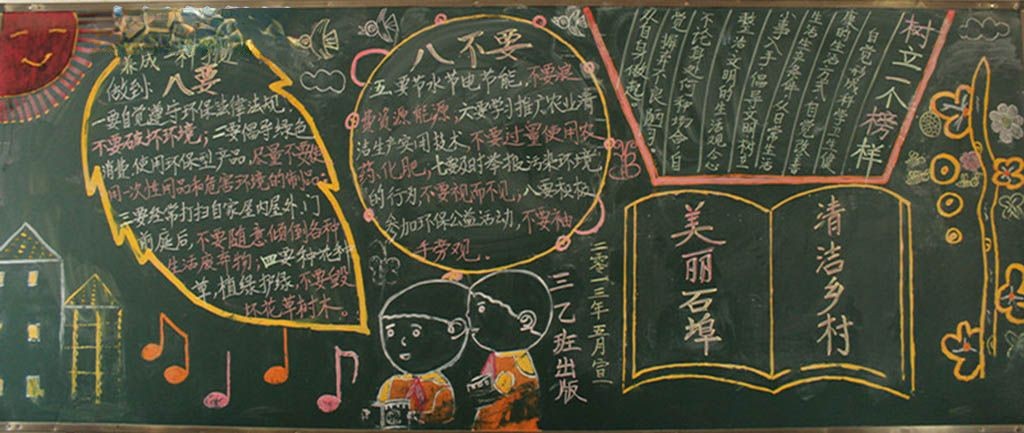 养成一种习
做到：八要
一要自觉遵守环保法律法规，
不要破坏环境；二要倡导绿色
消费，使用环保型产品，尽量不要使
用一次性用品和危害环境的制品。
三要经常打扫自家屋内屋外、门
前庭后，不要随意倾倒各种
生活废弃物；四要种花种
草，植绿护绿，不要毁
坏花草树木。
八不要
五要节水节电节能，不要浪
费资源能源，六要学习推广农业清
洁生产实用技术，不要过量使用农
药、化肥，七要及时举报污染环境
的行为，不要视而不见，八要积极
参加环保公益活动，不要袖
手旁观。
树立一个榜样
自觉形成科学卫生健
康的生活方式，自觉从
生活点滴、从日常生活
小事入手，倡导文明村
文明的生活观，
不论身边何种场合，自
觉摒弃不良陋习，
从自身做起。
美丽石埠
清洁乡村
二零一三年五月宣
三乙班出版